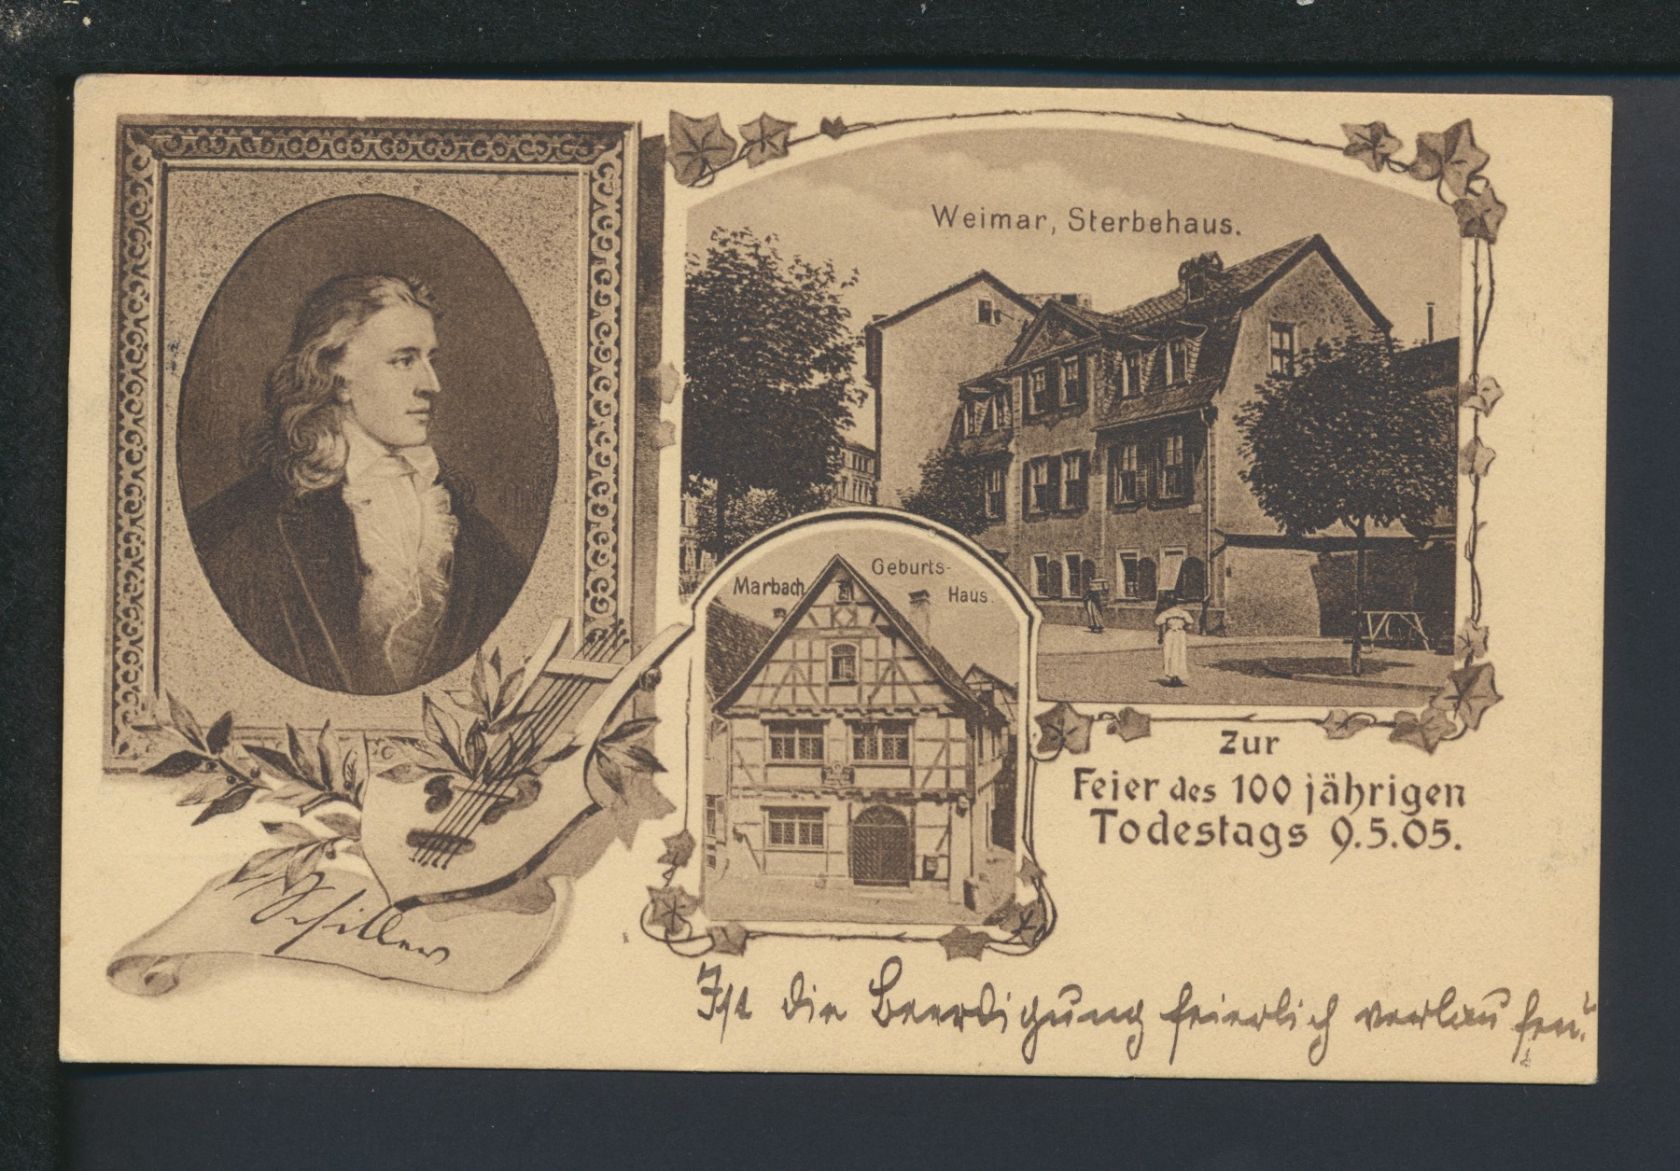 Weimar, Sterbehaus.
Marbach Geburts-
Haus.
Zur
Feier des 100 jährigen
Todestags 9.5.05.
Schiller
Ist die Beerdigung feierlich verlaufen?